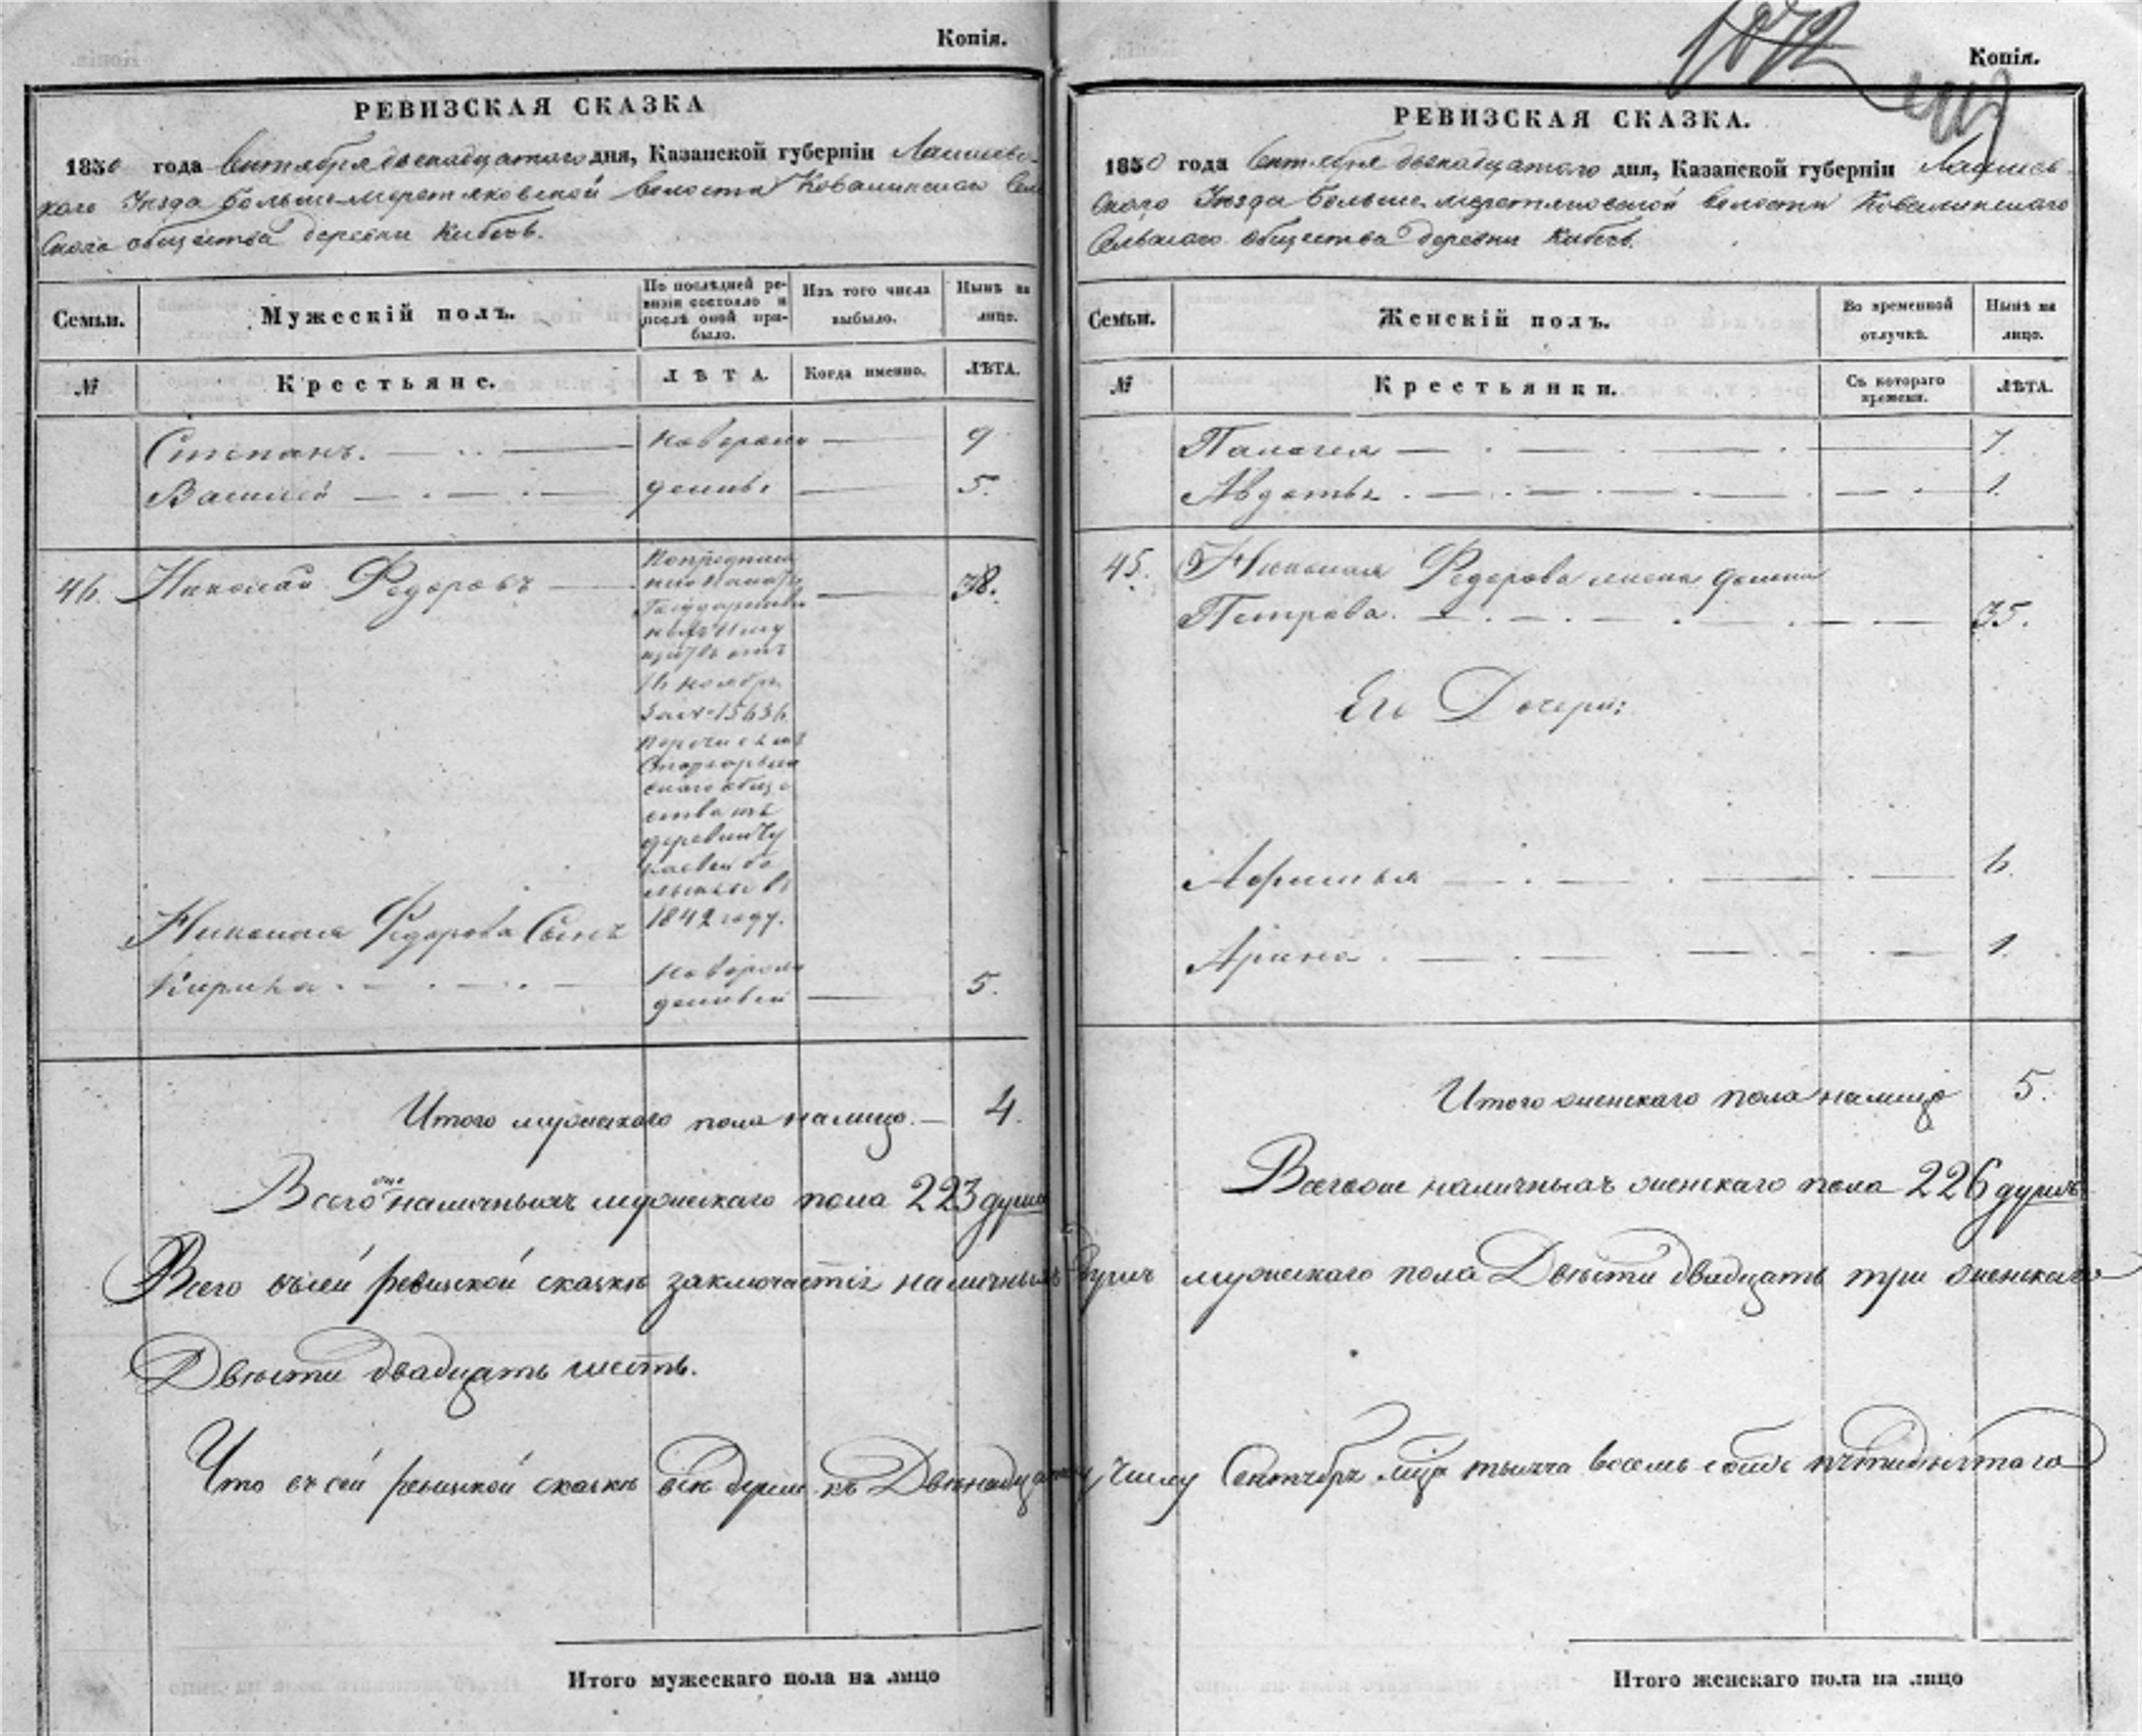 Копія.
РЕВИЗСКАЯ СКАЗКА
1850 года Сентября двенадцатого дня, Казанской губерніи Лаишевс-
каго Уезда Больше-меретяковской волости Ковалинскаго Сель
скаго общества деревни Кибечь.
Семьи.
Мужескій полъ.
По послѣдней ре-
визіи состояло и
послѣ оной при-
было.
Изъ того числа
выбыло.
Нынѣ на
лицо.
№
Крестьяне.
ЛѢТА.
Когда именно.
ЛѢТА.
Степанъ. новорож 9
Василей денны 5.
46. Николай Федоровъ 38.
Государствен
ныхъ Иму
ществъ отъ
16 ноября
за № 15636
перечисленъ
общe
ства изъ
деревни Чу
1842 году.
Николая Федорова Сынъ
Кирила новорож
денный 5.
Итого мужескаго пола налицо. 4.
Всего оне наличныхъ мужескаго пола 223 душъ
Копія.
1872
РЕВИЗСКАЯ СКАЗКА.
1850 года Сентября двенадцатого дня, Казанской губерніи Лаишев-
скаго Уезда Больше-меретяковской волости Ковалинскаго
Сельскаго общества деревни Кибечь.
Семьи.
Женскій полъ.
Во временной
отлучкѣ.
Нынѣ на
лицо.
№
Крестьянки.
Съ котораго
времени.
ЛѢТА.
Палагея 7.
Авдотья 1.
45. Николая Федорова жена
Петрова. 35.
Его Дочери:
Афимья 6.
Арина. 1.
Итого женскаго пола налицо 5.
Всегооне наличныхъ женскаго пола 226 душъ
Всего въсей ревизской сказкѣ заключается наличныхъ душъ мужескаго пола Двести двадцать три женскаго
Двести двадцать шесть.
Что въ сей ревизской сказкѣ все души къ Двенадцатому Числу Сентября мца тысяча восемь сотъ пятидесятого
Итого мужескаго пола на лицо
Итого женскаго пола на лицо